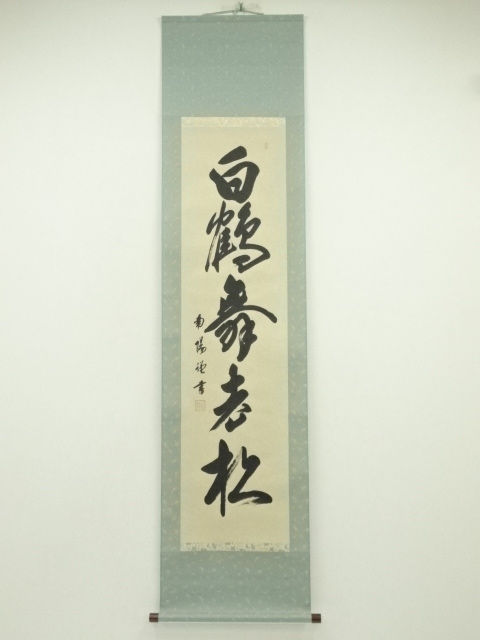 白鶴舞老松
南陽謹書